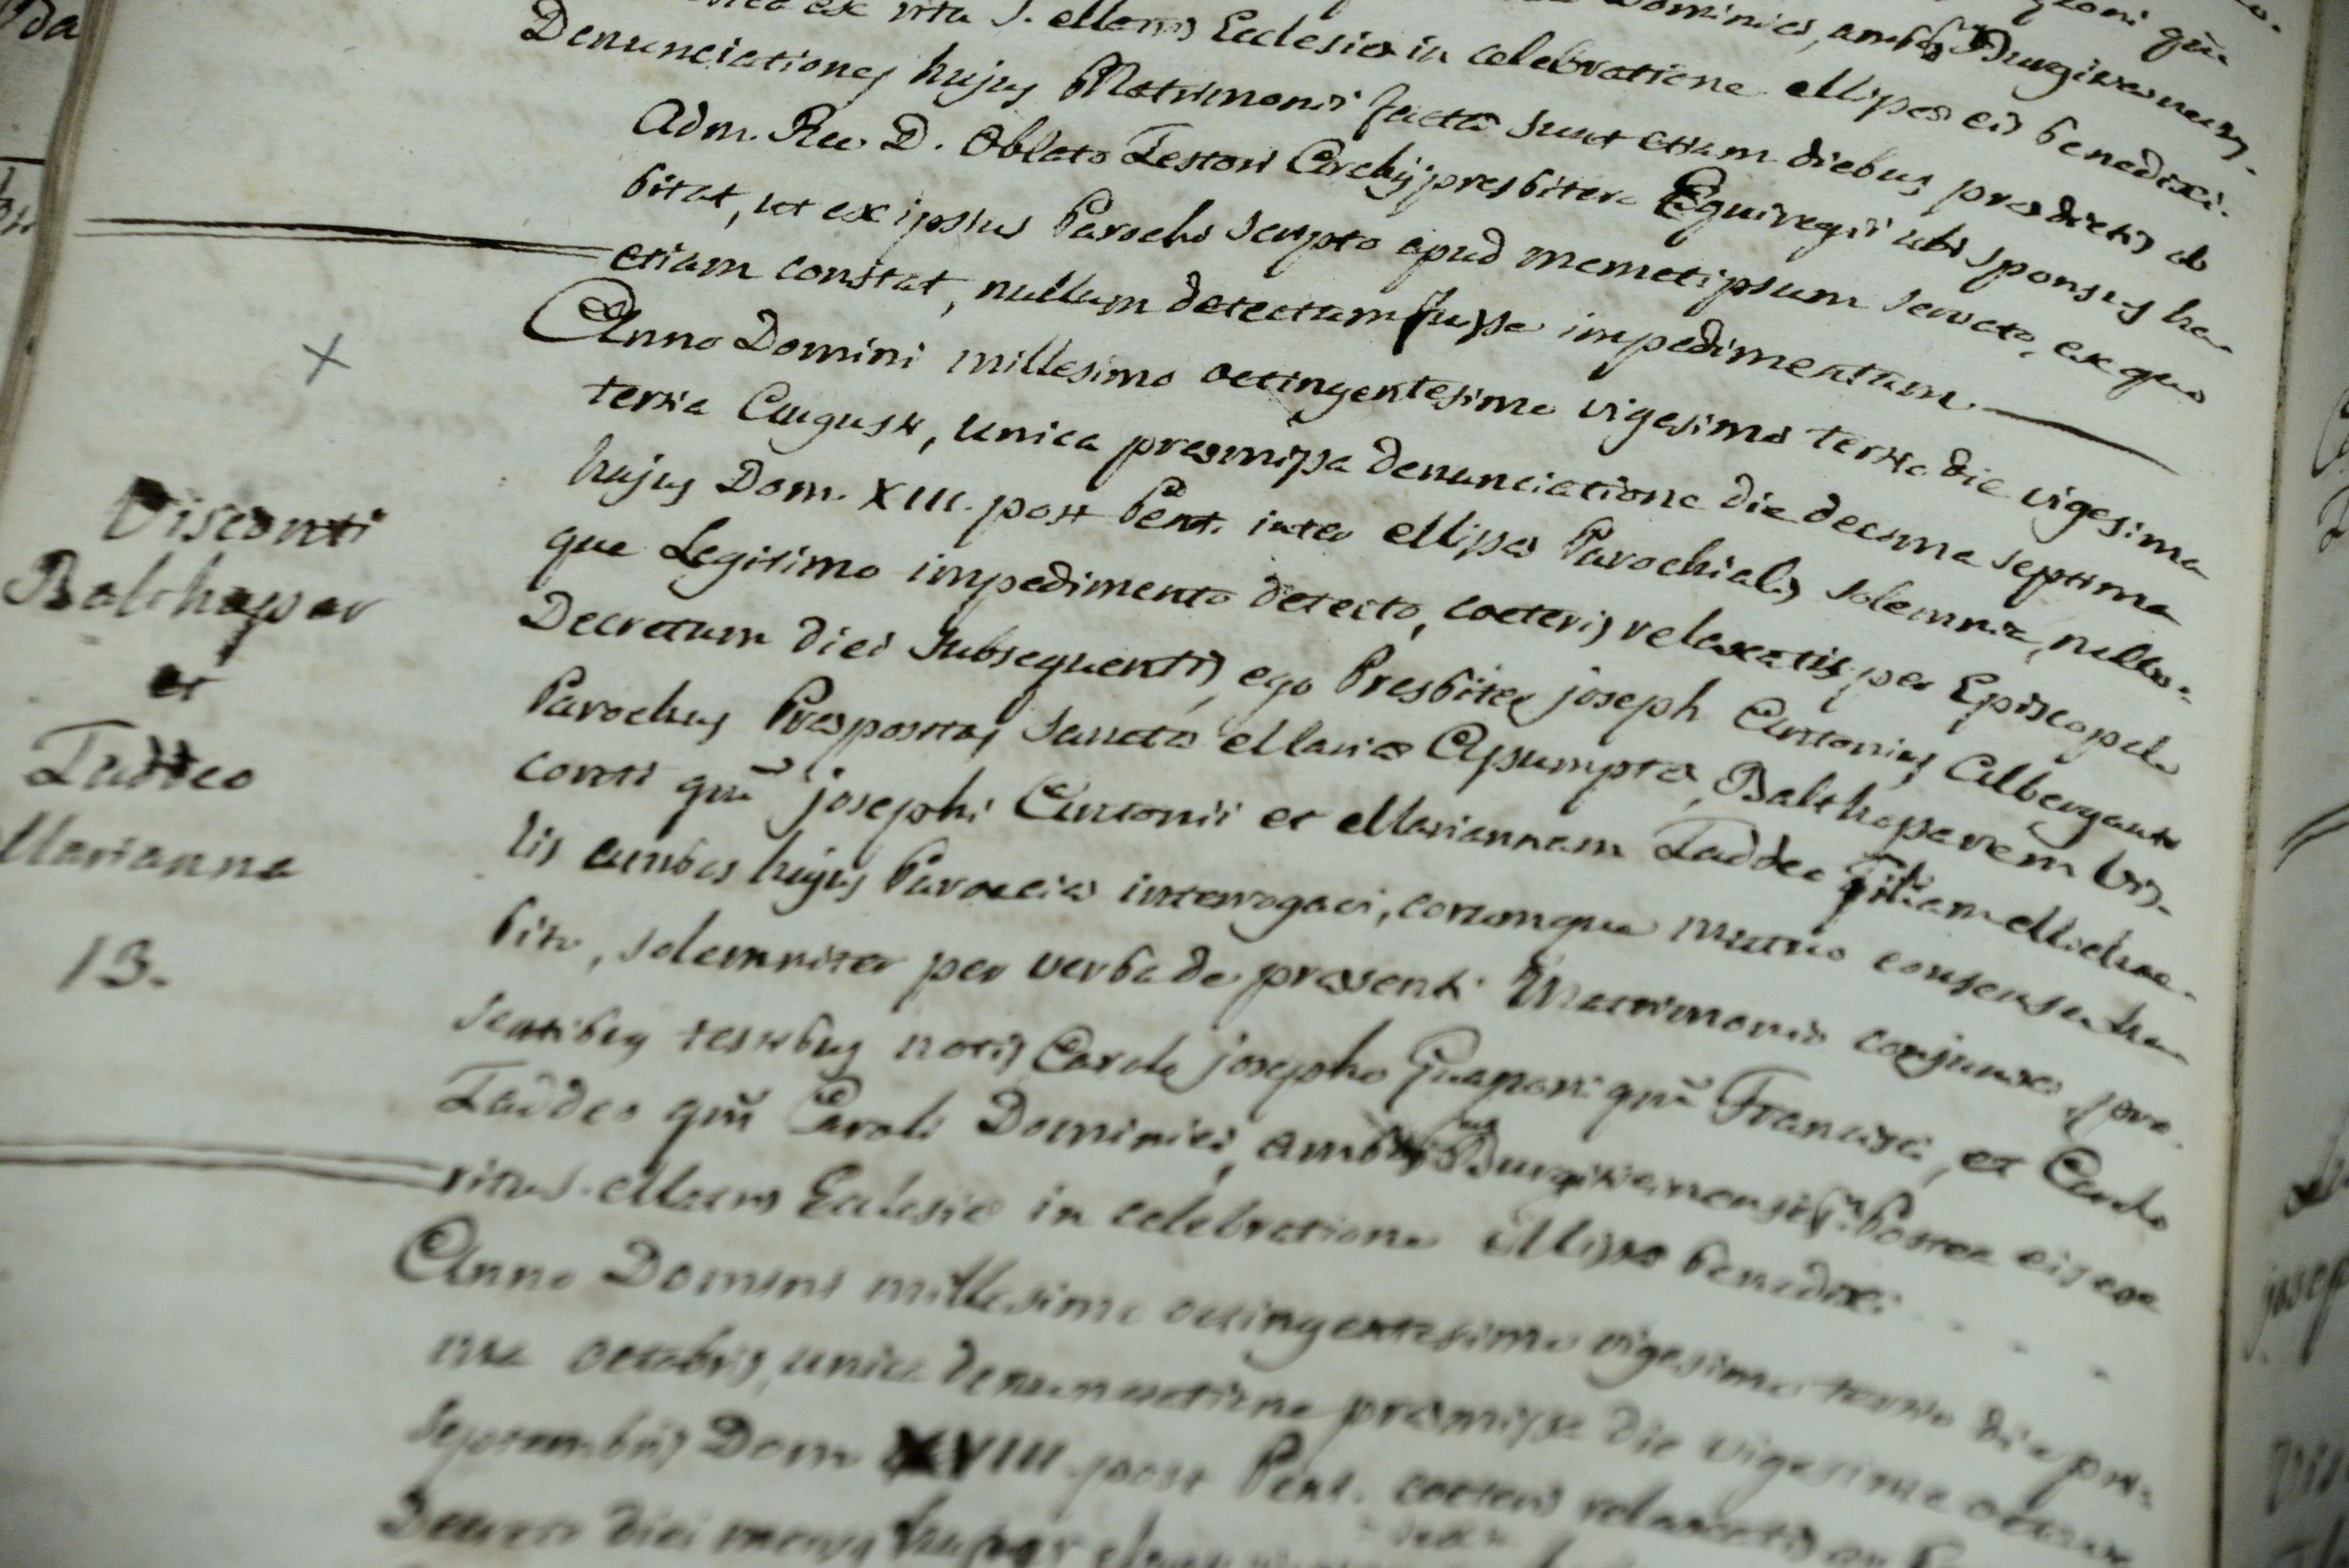 postea ex ritu S. Matris Ecclesiæ in celebratione Missæ eis benedixi.
Denunciationes hujus Matrimonii factæ sunt etiam diebus prædictis ab
Adm. Rev. D. Oblato Testori Archipresbitero Equiregii ubi sponsus ha-
bitat, ut ex ipsius Parochi scripto apud memetipsum servato, ex quo
etiam constat, nullum detectum fuisse impedimentum.
Anno Domini millesimo octingentesimo vigesimo tertio die vigesima
tertia Augusti, unica præmissa denunciatione die decima septima
hujus Dom. XIII. post Pent. inter Missæ Parochialis solemnia, nullo-
que Legitimo impedimento detecto, coeteris relaxatis per Episcopale
Decretum diei subsequentis, ego Presbiter Joseph Antonius Albergante
Parochus Præpositus Sanctæ Mariæ Assumptæ, Balthassarem Vis-
conti qm̃ Josephi Antonii et Mariannam Taddeo filiam Michae-
lis ambos hujus Paroeciæ interrogavi, eorumque mutuo consensu ha-
bito, solemniter per verba de præsenti Matrimonio conjunxi, præ-
sentibus testibus notis Carolo Josepho Guaponi qm̃ Francisci, et Carolo
Taddeo qm̃ Caroli Dominici, Postea eis ex
ritu S. Matris Ecclesiæ in celebratione Missæ benedixi.
Visconti
Balthassar
et
Taddeo
Marianna
13.
Anno Domini millesimo octingentesimo vigesimo tertio die pri-
ma octobris, unica denunciatione præmissa die vigesima octava
Septembris Dom XVIII post Pent. coeteris relaxatis